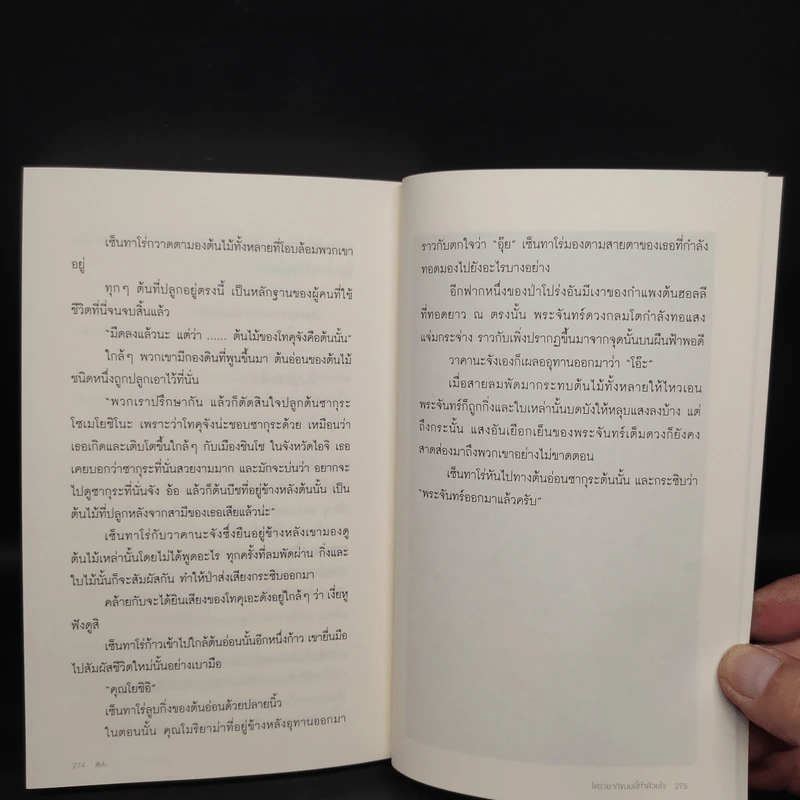 เซ็นทาโร่กวาดตามองต้นไม้ทั้งหลายที่โอบล้อมพวกเขา
อยู่
ทุกๆ ต้นที่ปลูกอยู่ตรงนี้ เป็นหลักฐานของผู้คนที่ใช้
ชีวิตที่นี่จนจบสิ้นแล้ว
"มืดลงแล้วนะ แต่ว่า ...... ต้นไม้ของโทคุจังคือต้นนั้น"
ใกล้ๆ พวกเขามีกองดินที่พูนขึ้นมา ต้นอ่อนของต้นไม้
ชนิดหนึ่งถูกปลูกเอาไว้ที่นั่น
"พวกเราปรึกษากัน แล้วก็ตัดสินใจปลูกต้นซากุระ
โซเมโยชิโนะ เพราะว่าโทคุจังน่ะชอบซากุระด้วย เหมือนว่า
เธอเกิดและเติบโตขึ้นใกล้ๆ กับเมืองชินโช ในจังหวัดไอจิ เธอ
เคยบอกว่าซากุระที่นั่นสวยงามมาก และมักจะบ่นว่า อยากจะ
ไปดูซากุระที่นั่นจัง อ้อ แล้วก็ต้นบีชที่อยู่ข้างหลังต้นนั้น เป็น
ต้นไม้ที่ปลูกหลังจากสามีของเธอเสียแล้วน่ะ"
เซ็นทาโร่กับวาคานะจังซึ่งยืนอยู่ข้างหลังเขามองดู
ต้นไม้เหล่านั้นโดยไม่ได้พูดอะไร ทุกครั้งที่ลมพัดผ่าน กิ่งและ
ใบไม้นั้นก็จะสัมผัสกัน ทำให้ป่าส่งเสียงกระซิบออกมา
คล้ายกับจะได้ยินเสียงของโทคุเอะดังอยู่ใกล้ๆ ว่า เงี่ยหู
ฟังดูสิ
เซ็นทาโร่ก้าวเข้าไปใกล้ต้นอ่อนนั้นอีกหนึ่งก้าว เขายื่นมือ
ไปสัมผัสชีวิตใหม่นั้นอย่างเบามือ
"คุณโยชิอิ"
เซ็นทาโร่ลูบกิ่งของต้นอ่อนด้วยปลายนิ้ว
ในตอนนั้น คุณโมริยาม่าที่อยู่ข้างหลังอุทานออกมา
274
ราวกับตกใจว่า "อุ๊ย" เซ็นทาโร่มองตามสายตาของเธอที่กำลัง
ทอดมองไปยังอะไรบางอย่าง
อีกฟากหนึ่งของป่าโปร่งอันมีเงาของกำแพงต้นฮอลลี
ที่ทอดยาว ณ ตรงนั้น พระจันทร์ดวงกลมโตกำลังทอแสง
แจ่มกระจ่าง ราวกับเพิ่งปรากฏขึ้นมาจากจุดนั้นบนผืนฟ้าพอดี
วาคานะจังเองก็เผลออุทานออกมาว่า "โอ๊ะ"
เมื่อสายลมพัดมากระทบต้นไม้ทั้งหลายให้ไหวเอน
พระจันทร์ก็ถูกกิ่งและใบเหล่านั้นบดบังให้หลุบแสงลงบ้าง แต่
ถึงกระนั้น แสงอันเยือกเย็นของพระจันทร์เต็มดวงก็ยังคง
สาดส่องมาถึงพวกเขาอย่างไม่ขาดตอน
เซ็นทาโร่หันไปทางต้นอ่อนซากุระต้นนั้น และกระซิบว่า
"พระจันทร์ออกมาแล้วครับ"
โดรายากิขนมนี้ทำด้วยใจ 275